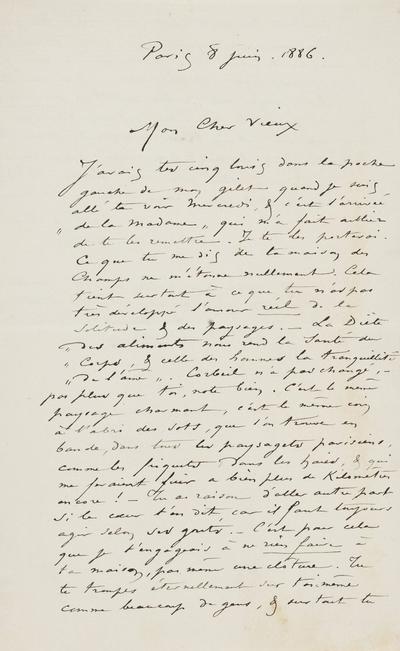 Paris 8 juin. 1886.
Mon Cher Vieux
J'avais tes cinq louis dans la poche
gauche de mon gilet quand je suis
allé te voir Mercredi, & c'est l'arrivée
"de la Madame" qui m'a fait oublier
de te les remettre. Je te les porterai.
Ce que tu me dis de ta maison des
Champs ne m'étonne nullement. Cela
tient surtout à ce que tu n'as pas
très développé l'amour réel de la
solitude & des paysages. — La Diète
"des aliments nous rend la Santé du
"Corps, & celle des hommes la tranquillité
"De l'âme". Corbeil n'a pas changé, —
pas plus que toi, note bien. C'est le même
paysage charmant, c'est le même coin
à l'abri des sots, que l'on trouve en
bande, dans tous les paysages parisiens,
comme les piquets dans les haies, & qui
me feraient fuir à bien plus de Kilomètres
encore! — Tu as raison d'aller autre part
si le cœur t'en dit car il faut toujours
agir selon ses goûts. — C'est pour cela
que je t'engageais à ne rien faire à
ta maison, pas même une clôture. Tu
te trompes éternellement sur toi-même
comme beaucoup de gens, & surtout tu